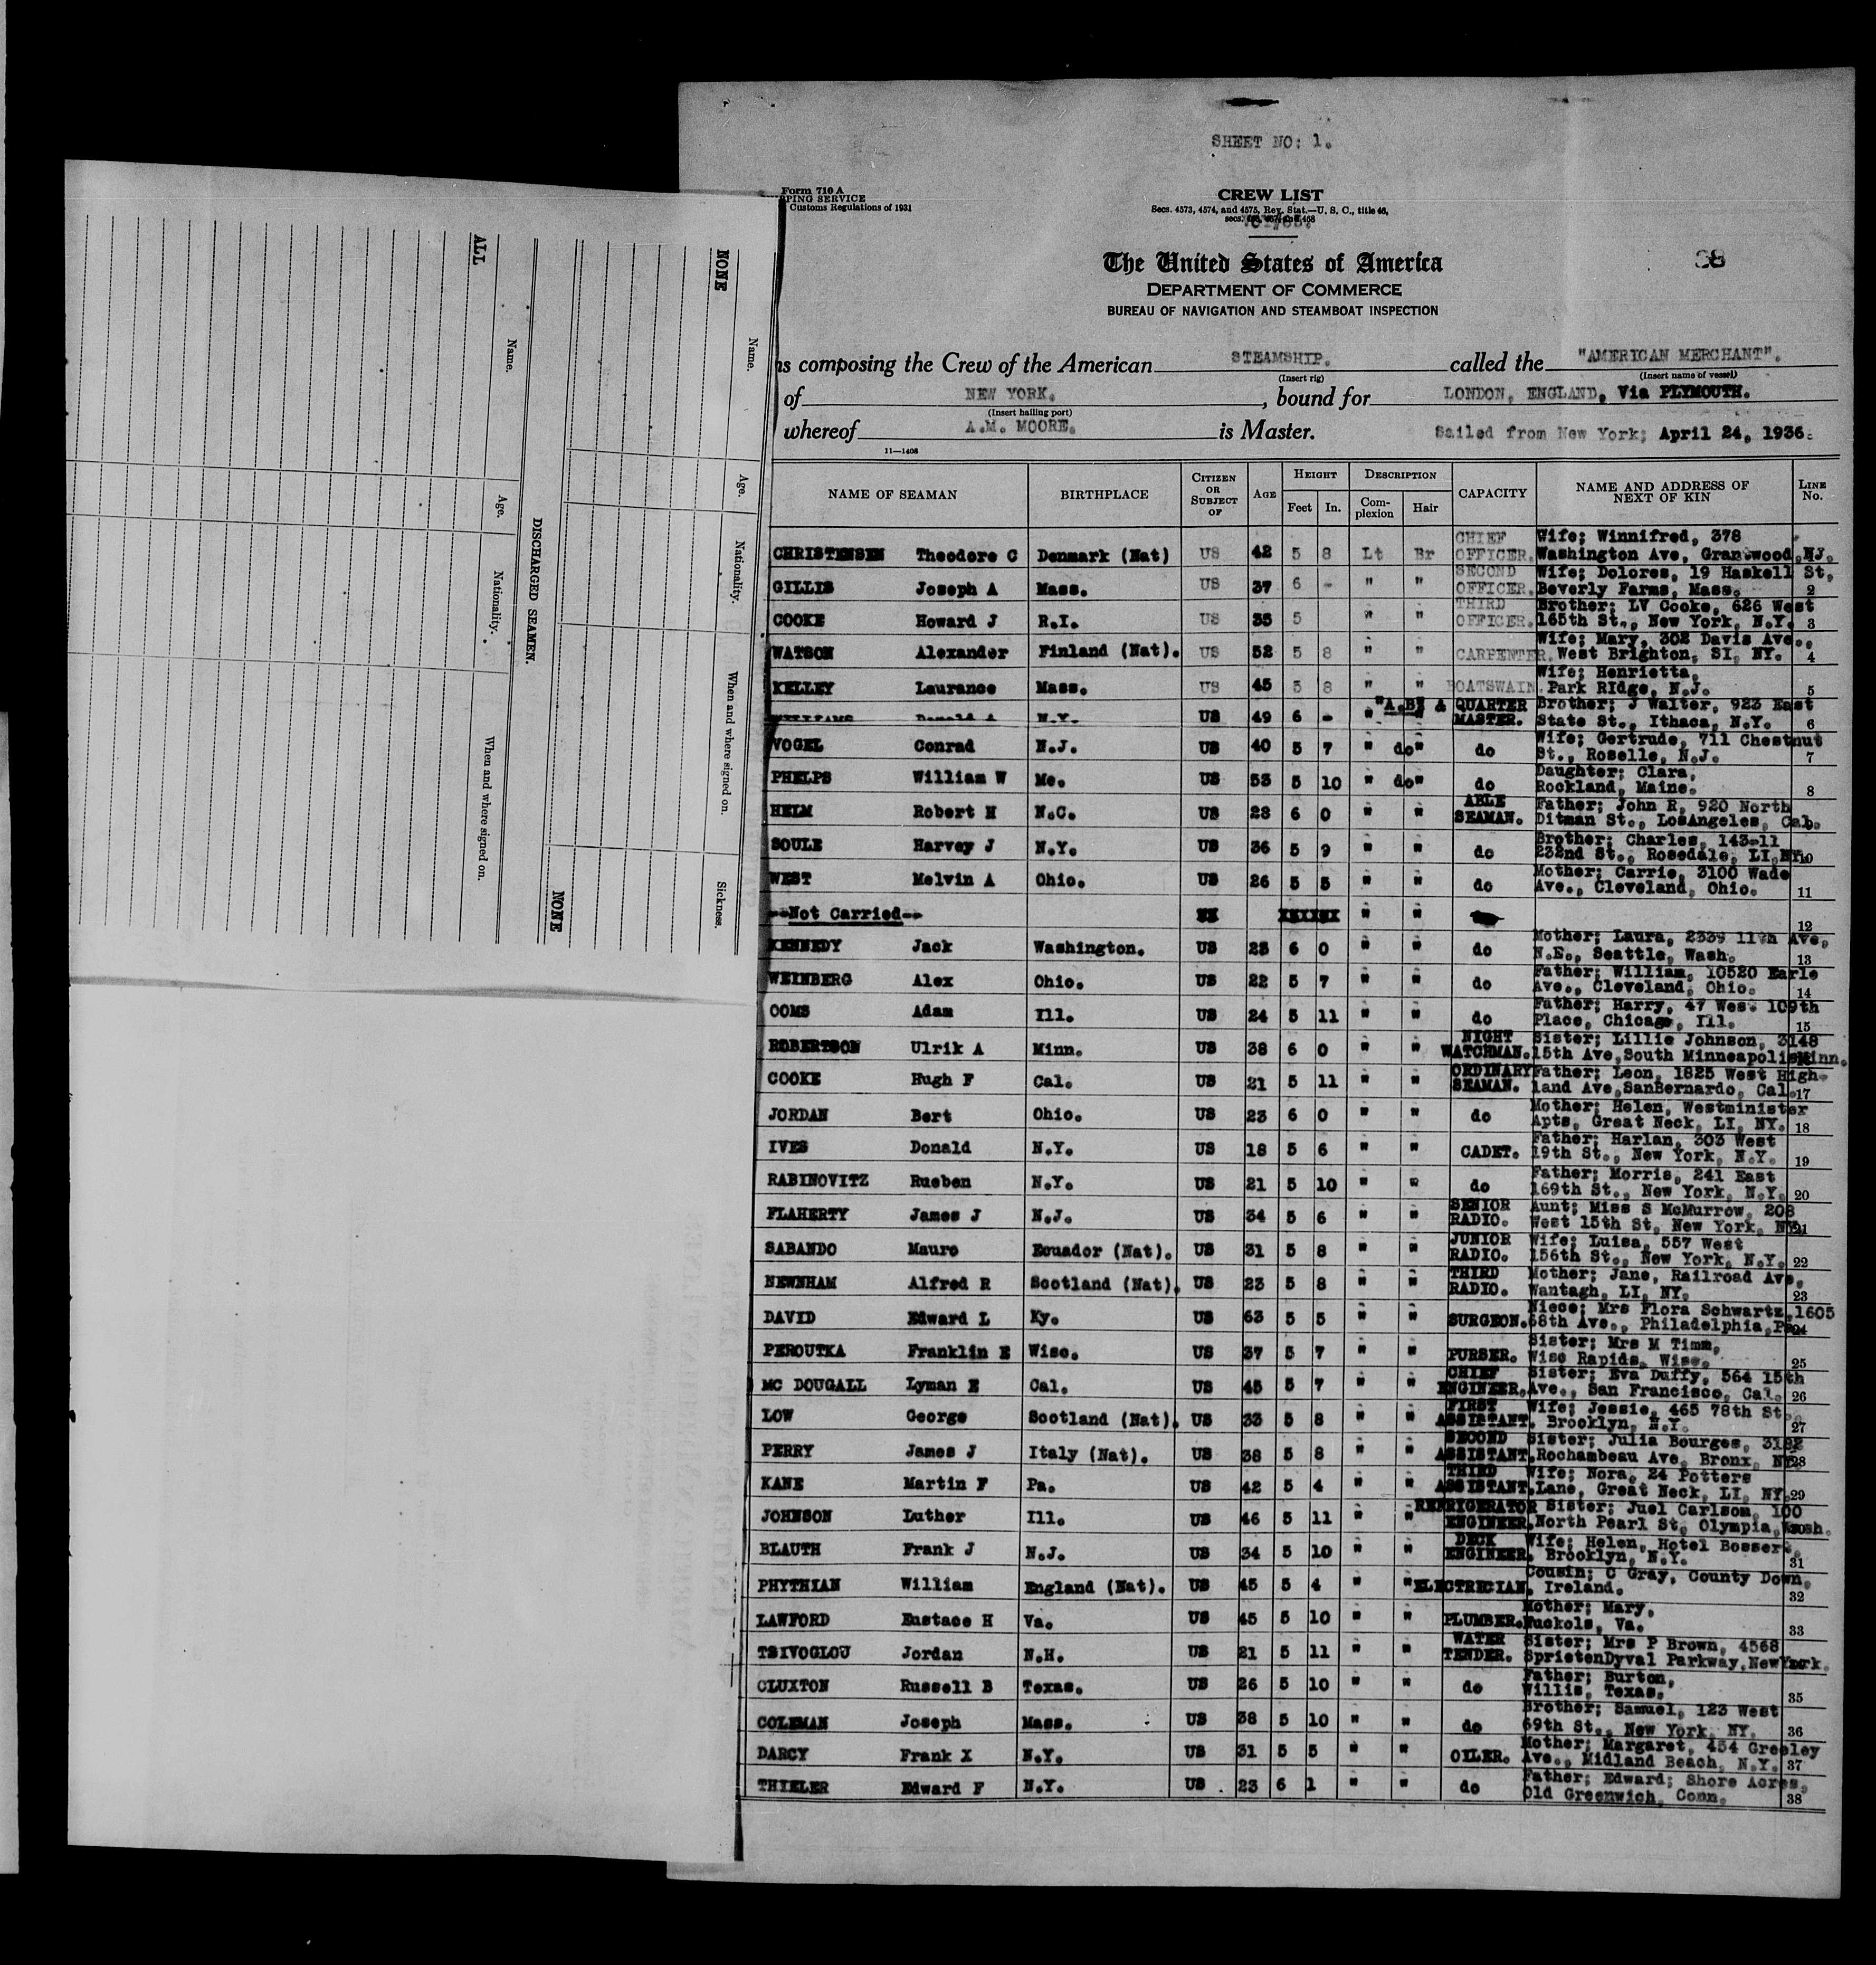 SHEET NO: 1.
Form 710 A
PING SERVICE
Customs Regulations of 1931
CREW LIST
Secs. 4573, 4574, and 4575, Rev. Stat.—U. S. C., title 46,
38
The United States of America
DEPARTMENT OF COMMERCE
BUREAU OF NAVIGATION AND STEAMBOAT INSPECTION
ns composing the Crew of the American STEAMSHIP. called the "AMERICAN MERCHANT".
(Insert rig) (Insert name of vessel)
of NEW YORK. , bound for LONDON, ENGLAND, Via PLYMOUTH.
(Insert hailing port)
whereof A.M. MOORE. is Master. Sailed from New York; April 24, 1936.
11—1408
NAME OF SEAMAN BIRTHPLACE CITIZEN OR SUBJECT OF AGE HEIGHT Feet In. DESCRIPTION Complexion Hair CAPACITY NAME AND ADDRESS OF NEXT OF KIN LINE No.
CHRISTENSEN Theodore C Denmark (Nat) US 42 5 8 Lt Br CHIEF OFFICER. Wife; Winnifred, 378 Washington Ave, Grantwood, NJ.
GILLIS Joseph A Mass. US 37 6 - " " SECOND OFFICER. Wife; Dolores, 19 Haskell St, Beverly Farms, Mass. 2
COOKE Howard J R.I. US 35 5 " " THIRD OFFICER. Brother; LV Cooke, 626 West 165th St., New York, N.Y. 3
WATSON Alexander Finland (Nat). US 52 5 8 " " CARPENTER. Wife; Mary, 302 Davis Ave., West Brighton, SI, NY. 4
KELLEY Laurance Mass. US 45 5 8 " " BOATSWAIN. Wife; Henrietta, Park RIdge, N.J. 5
WILLIAMS Donald A N.Y. US 49 6 - " "A.B" & QUARTER MASTER. Brother; J Walter, 923 East State St., Ithaca, N.Y. 6
VOGEL Conrad N.J. US 40 5 7 " do" do Wife; Gertrude, 711 Chestnut St., Roselle, N.J. 7
PHELPS William W Me. US 53 5 10 " do" do Daughter; Clara, Rockland, Maine. 8
HELM Robert H N.C. US 28 6 0 " " ABLE SEAMAN. Father; John R, 920 North Ditman St., LosAngeles, Cal.
SOULE Harvey J N.Y. US 36 5 9 " " do Brother; Charles, 143-11 232nd St., Rosedale, LI,NY. 10
WEST Melvin A Ohio. US 26 5 5 " " do Mother; Carrie, 3100 Wade Ave., Cleveland, Ohio. 11
--Not Carried-- XX XXXXXX " " 12
KENNEDY Jack Washington. US 23 6 0 " " do Mother; Laura, 2339 11th Ave, N.E., Seattle, Wash. 13
WEINBERG Alex Ohio. US 22 5 7 " " do Father; William, 10520 Earle Ave., Cleveland, Ohio. 14
OOMS Adam Ill. US 24 5 11 " " do Father; Harry, 47 West 109th Place, Chicago, Ill. 15
ROBERTSON Ulrik A Minn. US 38 6 0 " " NIGHT WATCHMAN. Sister; Lillie Johnson, 3148 15th Ave,South Minneapolis Minn.
COOKE Hugh F Cal. US 21 5 11 " " ORDINARY SEAMAN. Father; Leon, 1825 West High- land Ave,SanBernardo, Cal. 17
JORDAN Bert Ohio. US 23 6 0 " " do Mother; Helen, Westminister Apts, Great Neck, LI, NY. 18
IVES Donald N.Y. US 18 5 6 " " CADET. Father; Harlan, 303 West 19th St., New York, N.Y. 19
RABINOVITZ Rueben N.Y. US 21 5 10 " " do Father; Morris, 241 East 169th St., New York, N.Y. 20
FLAHERTY James J N.J. US 34 5 6 " " SENIOR RADIO. Aunt; Miss S McMurrow, 208 West 15th St, New York, NY. 21
SABANDO Mauro Ecuador (Nat). US 31 5 8 " " JUNIOR RADIO. Wife; Luisa, 557 West 156th St., New York, N.Y. 22
NEWNHAM Alfred R Scotland (Nat). US 23 5 8 " " THIRD RADIO. Mother; Jane, Railroad Ave, Wantagh, LI, NY. 23
DAVID Edward L Ky. US 63 5 5 " " SURGEON. Niece; Mrs Flora Schwartz,1605 68th Ave., Philadelphia,Pa. 24
PEROUTKA Franklin E Wisc. US 37 5 7 " " PURSER. Sister; Mrs M Timm, Wisc Rapids, Wisc. 25
MC DOUGALL Lyman E Cal. US 45 5 7 " " CHIEF ENGINEER. Sister; Eva Duffy, 564 15th Ave., San Francisco, Cal. 26
LOW George Scotland (Nat). US 33 5 8 " " FIRST ASSISTANT. Wife; Jessie, 465 78th St. Brooklyn, N.Y. 27
PERRY James J Italy (Nat). US 38 5 8 " " SECOND ASSISTANT. Sister; Julia Bourges, 3182 Rochambeau Ave, Bronx, NY. 28
KANE Martin F Pa. US 42 5 4 " " THIRD ASSISTANT. Wife; Nora, 24 Potters Lane, Great Neck, LI, NY. 29
JOHNSON Luther Ill. US 46 5 11 " " REFRIGERATOR ENGINEER. Sister; Juel Carlson, 100 North Pearl St, Olympia, Wash.
BLAUTH Frank J N.J. US 34 5 10 " " DECK ENGINEER. Wife; Helen, Hotel Bossert, Brooklyn, N.Y. 31
PHYTHIAN William England (Nat). US 45 5 4 " " ELECTRICIAN. Cousin; C Gray, County Down, Ireland. 32
LAWFORD Eustace H Va. US 45 5 10 " " PLUMBER. Mother; Mary, Nuckols, Va. 33
TSIVOGLOU Jordan N.H. US 21 5 11 " " WATER TENDER. Sister; Mrs P Brown, 4568 SpristenDyval Parkway,NewYork.
CLUXTON Russell B Texas. US 26 5 10 " " do Father; Burton, Willis, Texas. 35
COLEMAN Joseph Mass. US 38 5 10 " " do Brother; Samuel, 123 West 69th St., New York, NY. 36
DARCY Frank X N.Y. US 31 5 5 " " OILER. Mother; Margaret, 454 Greeley Ave., Midland Beach, N.Y. 37
THIELER Edward F N.Y. US 23 6 1 " " do Father; Edward; Shore Acres, Old Greenwich, Conn. 38
Name. Age. Nationality. When and where signed on. Sickness.
NONE
DISCHARGED SEAMEN. NONE
Name. Age. Nationality. When and where signed on.
ALL